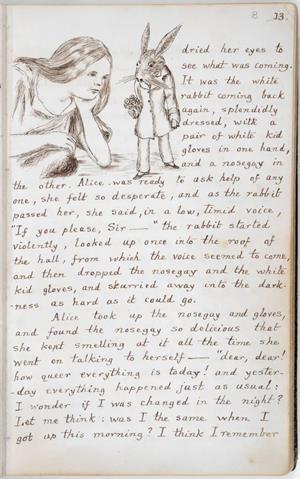 8 13.
dried her eyes to
see what was coming.
It was the white
rabbit coming back
again, splendidly
dressed, with a
pair of white kid
gloves in one hand,
and a nosegay in
the other. Alice was ready to ask help of any
one, she felt so desperate, and as the rabbit
passed her, she said, in a low, timid voice,
"If you please, Sir—" the rabbit started
violently, looked up once into the roof of
the hall, from which the voice seemed to come,
and then dropped the nosegay and the white
kid gloves, and skurried away into the dark-
-ness as hard as it could go.
Alice took up the nosegay and gloves,
and found the nosegay so delicious that
she kept smelling at it all the time she
went on talking to herself— "dear, dear!
how queer everything is today! and yester-
-day everything happened just as usual:
I wonder if I was changed in the night?
Let me think: was I the same when I
got up this morning? I think I remember